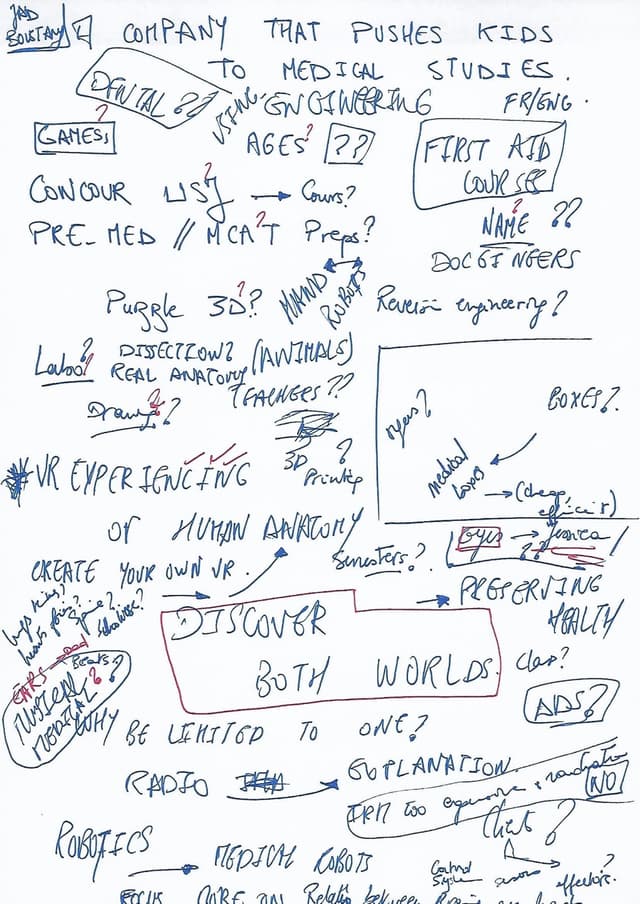 JAD
BOUSTANY
COMPANY THAT PUSHES KIDS
TO MEDICAL STUDIES.
DENTAL ??
USING ENGINEERING
FR/ENG.
GAMES ?
AGES ? ??
FIRST AID
COURSES
CONCOUR USJ ? → Cours?
NAME ? ??
PRE-MED // MCAT ? Preps?
DOCGINEERS
Puzzle 3D??
HAND
ROBOTS
Reverse engineering?
Labo??
DISSECTION? (ANIMALS)
REAL ANATOMY
TEACHERS ??
Drawing??
BOXES?
medical
boxes
→ (cheap,
efficient)
VR EXPERIENCING
3D Printing ?
OF HUMAN ANATOMY
→ Jessica
??
Semesters?
CREATE YOUR OWN VR.
→ PRESERVING
HEALTH
Spine?
EARS
Beats?
MUSICAL ?
MEDICAL
DISCOVER
BOTH WORLDS.
Class?
ADS?
WHY BE LIMITED TO ONE?
RADIO → EXPLANATION
IRM too expensive
NO
ROBOTICS
→ MEDICAL ROBOTS
?
Control
System
sensors
effectors.
FOCUS MORE ON Relation between